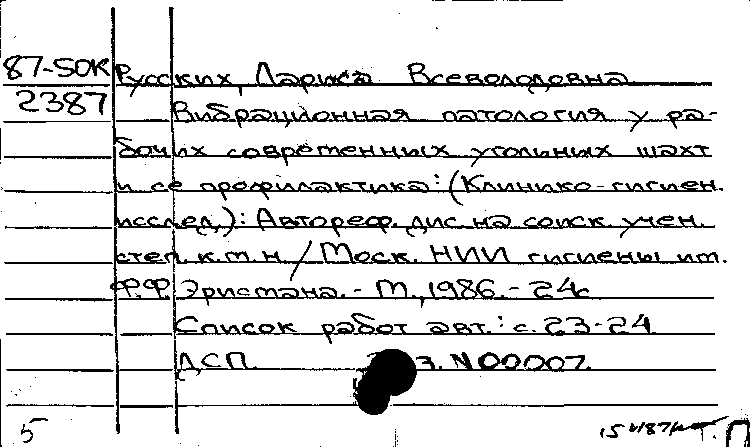 87-50К Русских, Лариса Всеволодовна
2387 Вибрационная патология у ра-
бочих современных угольных шахт
и ее профилактика: (Клинико-гигиен.
исслед.): Автореф. дис. на соиск. учен.
степ. к.м.н / Моск. НИИ гигиены им.
Ф.Ф. Эрисмана. - М., 1986. - 24с
Список работ авт.: с. 23-24
ДСП. э. N00007.
5